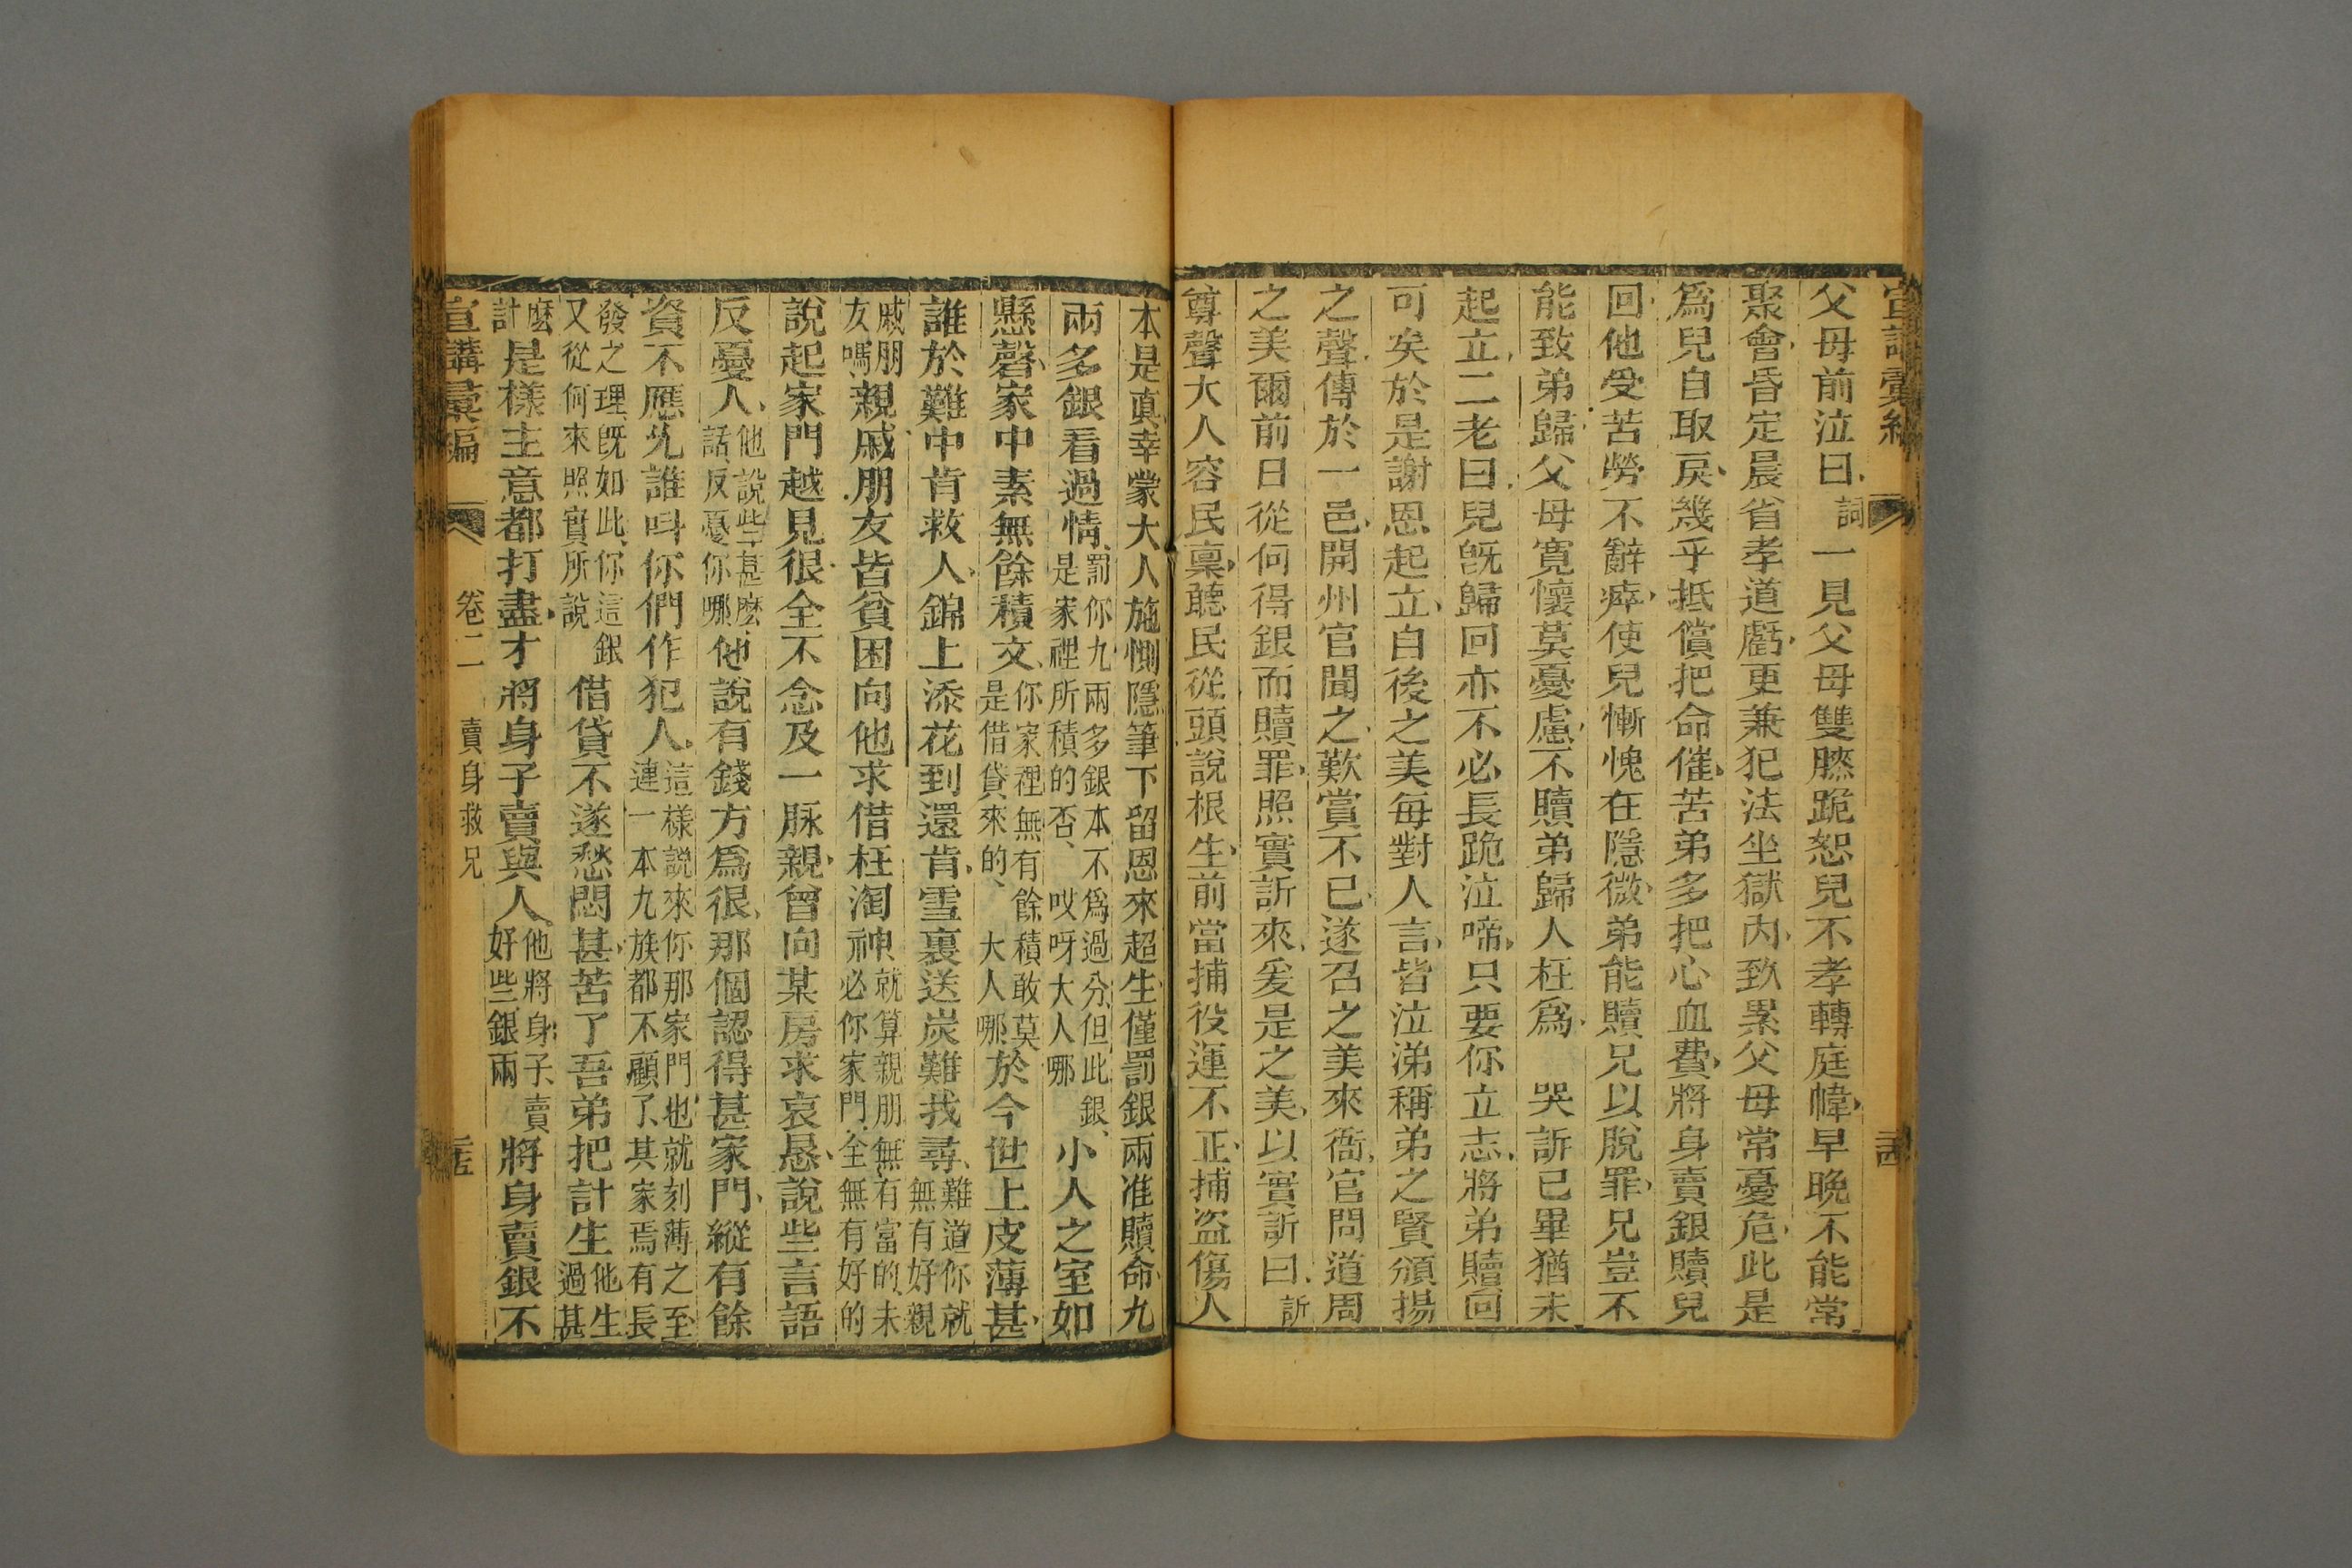 宣講彙編
父母前泣曰、詞一見父母雙膝跪恕兒不孝轉庭幃、早晚不能常
聚會、昏定晨省孝道虧、更兼犯法坐獄內、致累父母常憂危、此是
爲兒自取戾、幾乎抵償把命催、苦弟多把心血費、將身賣銀贖兒
回他受苦勞不辭瘁、使兒慚愧在隱微、弟能贖兄以脫罪、兄豈不
能致弟歸、父母寬懷莫憂慮、不贖弟歸人枉爲、哭訴已畢猶未
起立、二老曰、兒旣歸回亦不必長跪泣啼、只要你立志、將弟贖回
可矣於是謝恩起立、自後之美每對人言、皆泣涕稱弟之賢頒揚
之聲、傳於一邑、開州官聞之、歎賞不已、遂召之美來衙、官問道周
之美爾前日從何得銀而贖罪、照實訴來、爰是之美、以實訴曰、訴
尊聲大人容民稟、聽民從頭說根生、前當捕役運不正、捕盜傷人
本是真幸蒙大人施惻隱筆下留恩來超生僅罰銀兩准贖命九
兩多銀看過情、罰你九兩多銀本不爲過分、但此銀、是家裡所積的否、哎呀大人哪小人之室如
懸磬、家中素無餘積文、你家裡無有餘積敢莫是借貸來的、大人哪於今世上皮薄甚、
誰於難中肯救人、錦上添花到還肯、雪裏送炭難找尋、難道你就無有好親
戚朋友嗎、親戚朋友皆貧困向他求借枉淘神就算親朋無有富的、未必你家門、全無有好的
說起家門越見很、全不念及一脉親、曾向某房求哀懇、說些言語
反憂人、他說些甚麽話、反憂你哪、他說有錢方爲很、那個認得甚家門、縱有餘
資不應允誰呌你們作犯人、這樣說來你那家門也就刻薄之至連一本九族都不顧了、其家焉有長
發之理、旣如此、你這銀又從何來照實所說借貸不遂愁悶甚、苦了吾弟把計生他生過甚
麽計是樣主意都打盡、才將身子賣與人、他將身子、賣好些、銀兩將身賣銀不
宣講彙編 卷二 賣身救兄